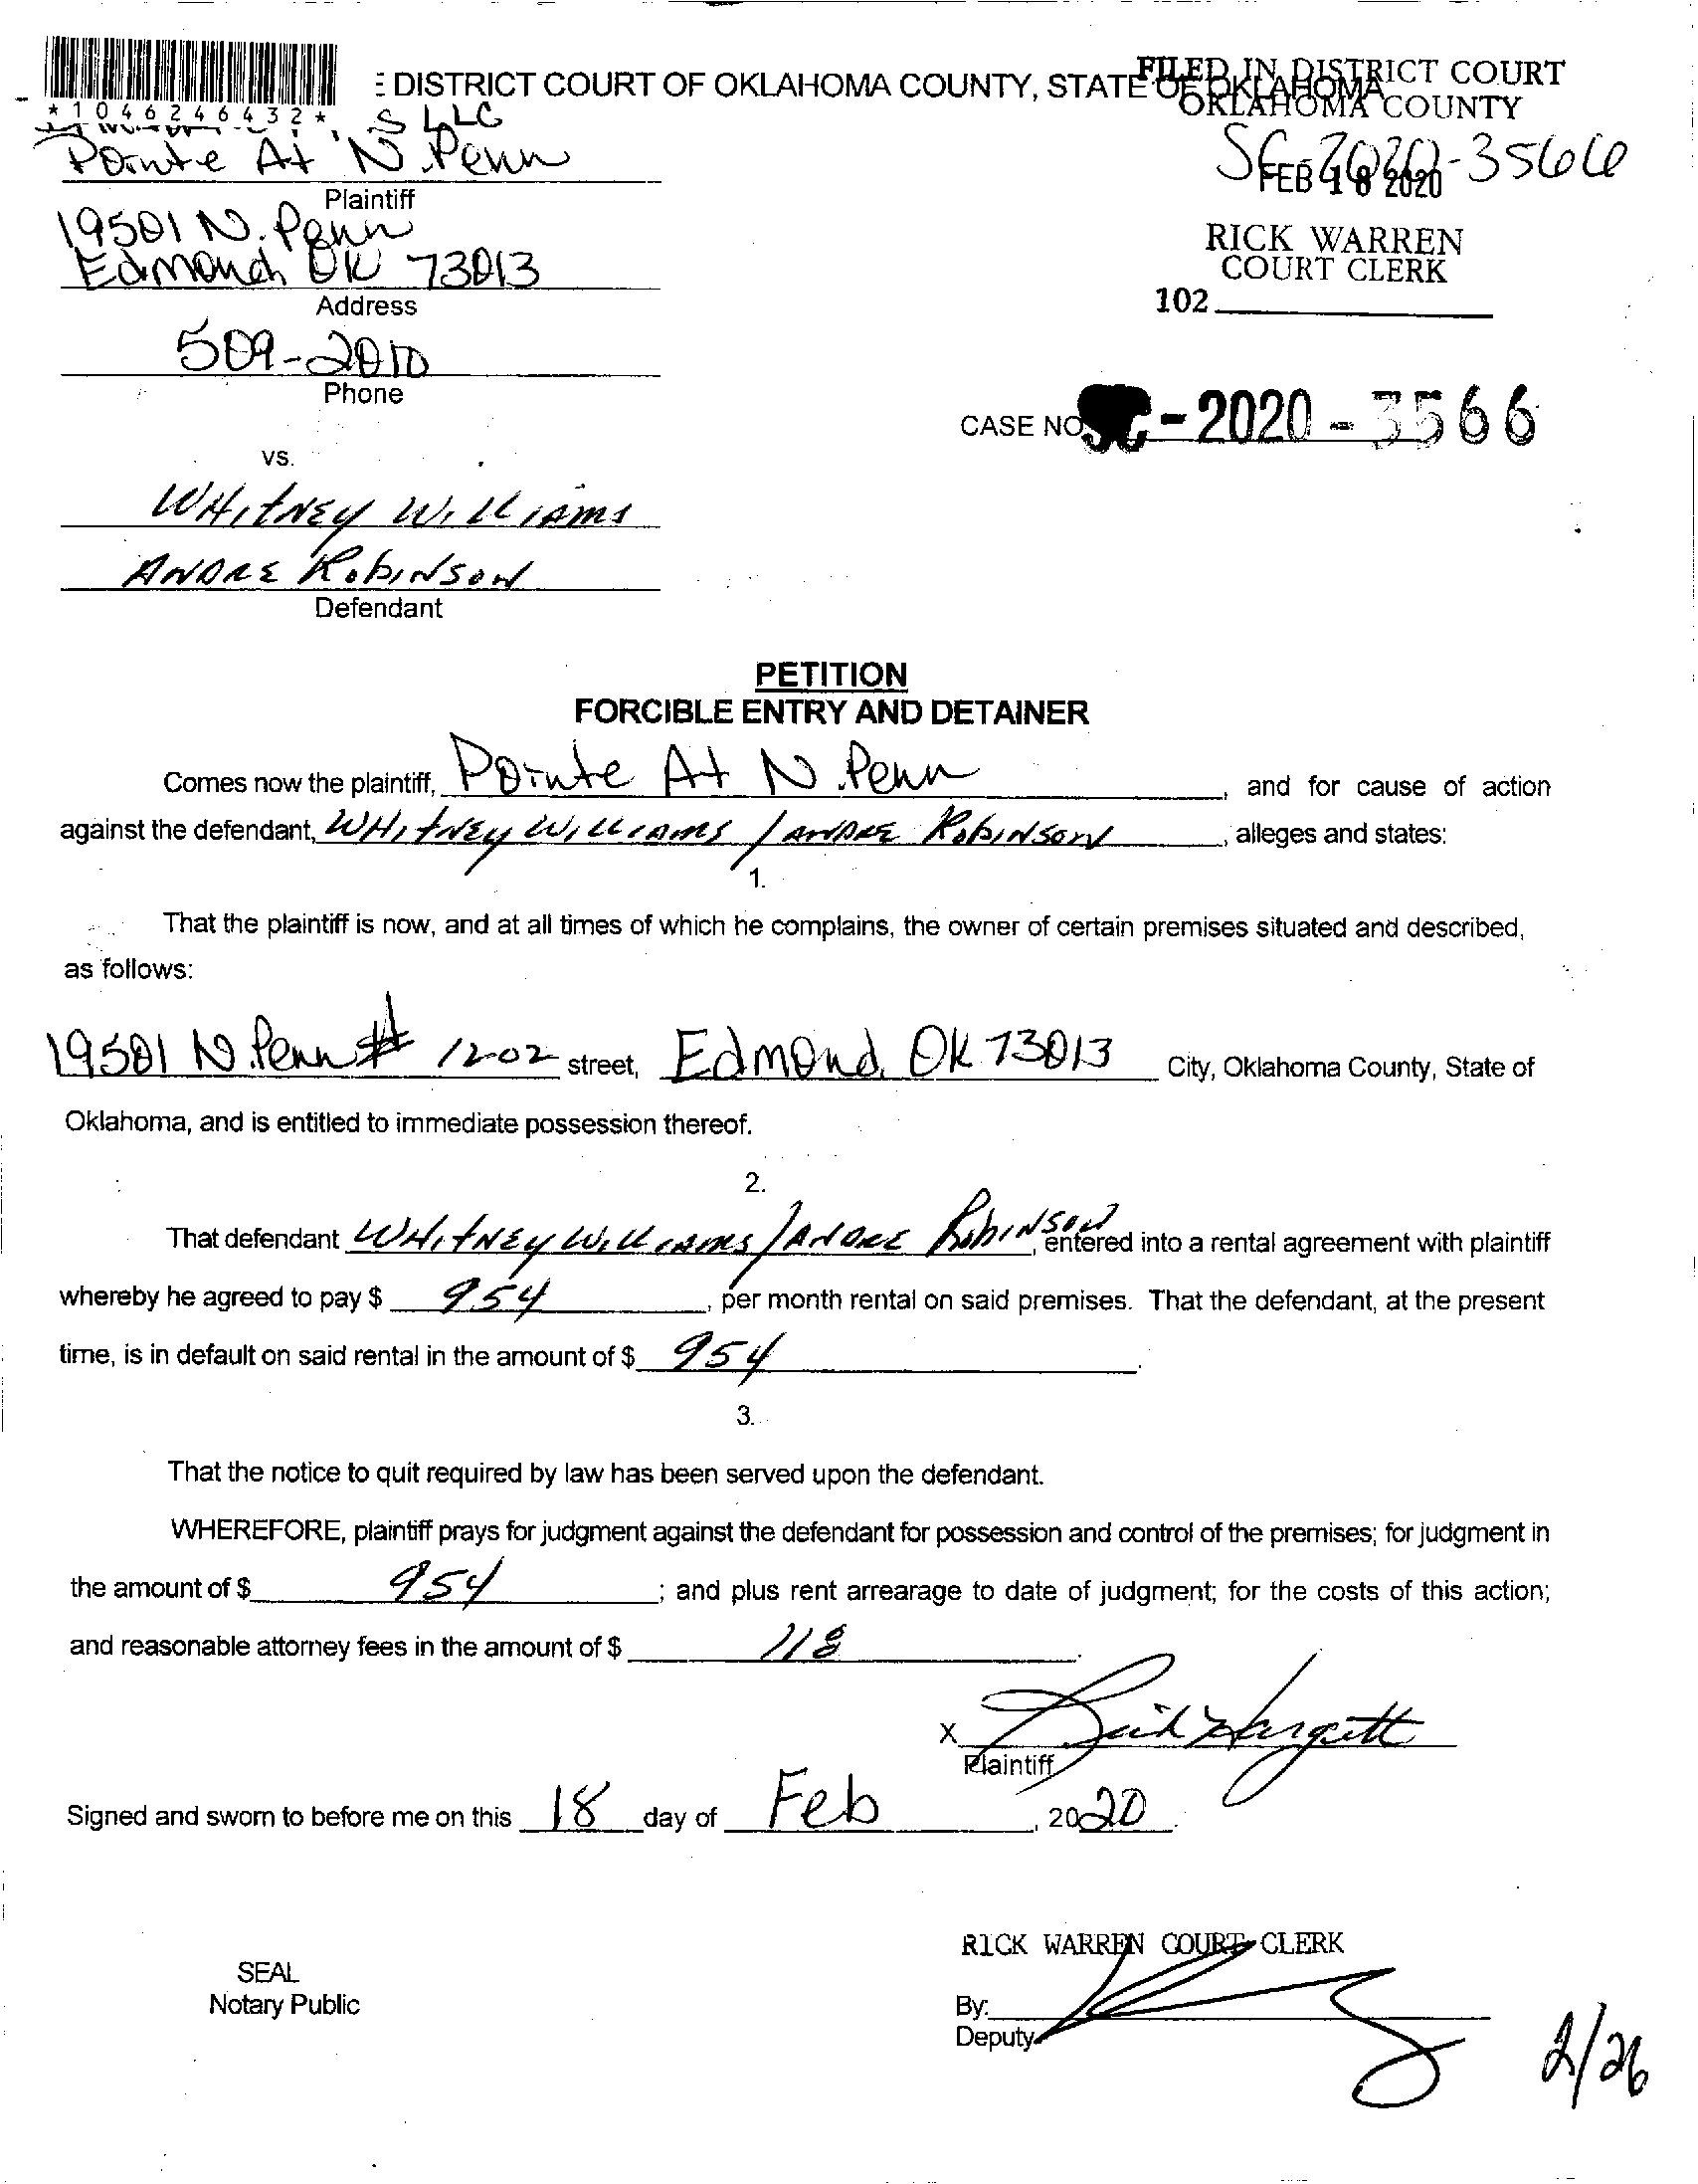 DISTRICT COURT OF OKLAHOMA COUNTY, STATE OF OKLAHOMA
FILED IN DISTRICT COURT
OKLAHOMA COUNTY
*1046246432*
S LLC
Pointe At N. Penn
SC-2020-3566
FEB 18 2020
Plaintiff
19501 N. Penn
RICK WARREN
Edmond OK 73013
COURT CLERK
Address
102
509-2010
Phone
CASE NO. SC-2020-3566
vs.
WHITNEY WILLIAMS
ANDRE ROBINSON
Defendant
PETITION
FORCIBLE ENTRY AND DETAINER
Comes now the plaintiff, Pointe At N. Penn, and for cause of action
against the defendant, WHITNEY WILLIAMS / ANDRE ROBINSON, alleges and states:
1.
That the plaintiff is now, and at all times of which he complains, the owner of certain premises situated and described,
as follows:
19501 N. Penn # 1202 street, Edmond, OK 73013 City, Oklahoma County, State of
Oklahoma, and is entitled to immediate possession thereof.
2.
That defendant WHITNEY WILLIAMS / ANDRE ROBINSON, entered into a rental agreement with plaintiff
whereby he agreed to pay $ 954, per month rental on said premises. That the defendant, at the present
time, is in default on said rental in the amount of $ 954.
3.
That the notice to quit required by law has been served upon the defendant.
WHEREFORE, plaintiff prays for judgment against the defendant for possession and control of the premises; for judgment in
the amount of $ 954; and plus rent arrearage to date of judgment; for the costs of this action;
and reasonable attorney fees in the amount of $ 118.
X Hargett
Plaintiff
Signed and sworn to before me on this 18 day of Feb, 2020.
RICK WARREN COURT CLERK
SEAL
Notary Public
By:
Deputy
2/26